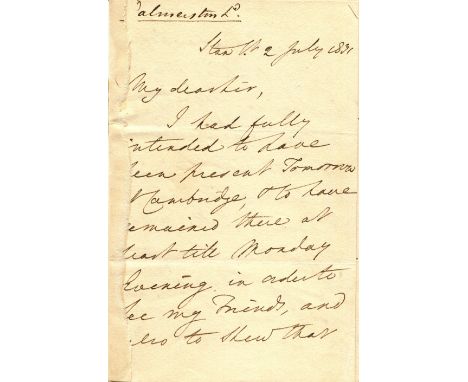 Palmerston Ld.
Stan St 2 July 1831
My dear Sir,
I had fully
intended to have
been present Tomorrow
at Cambridge, & to have
remained there at
least till Monday
Evening in order to
see my Friends, and
also to shew that